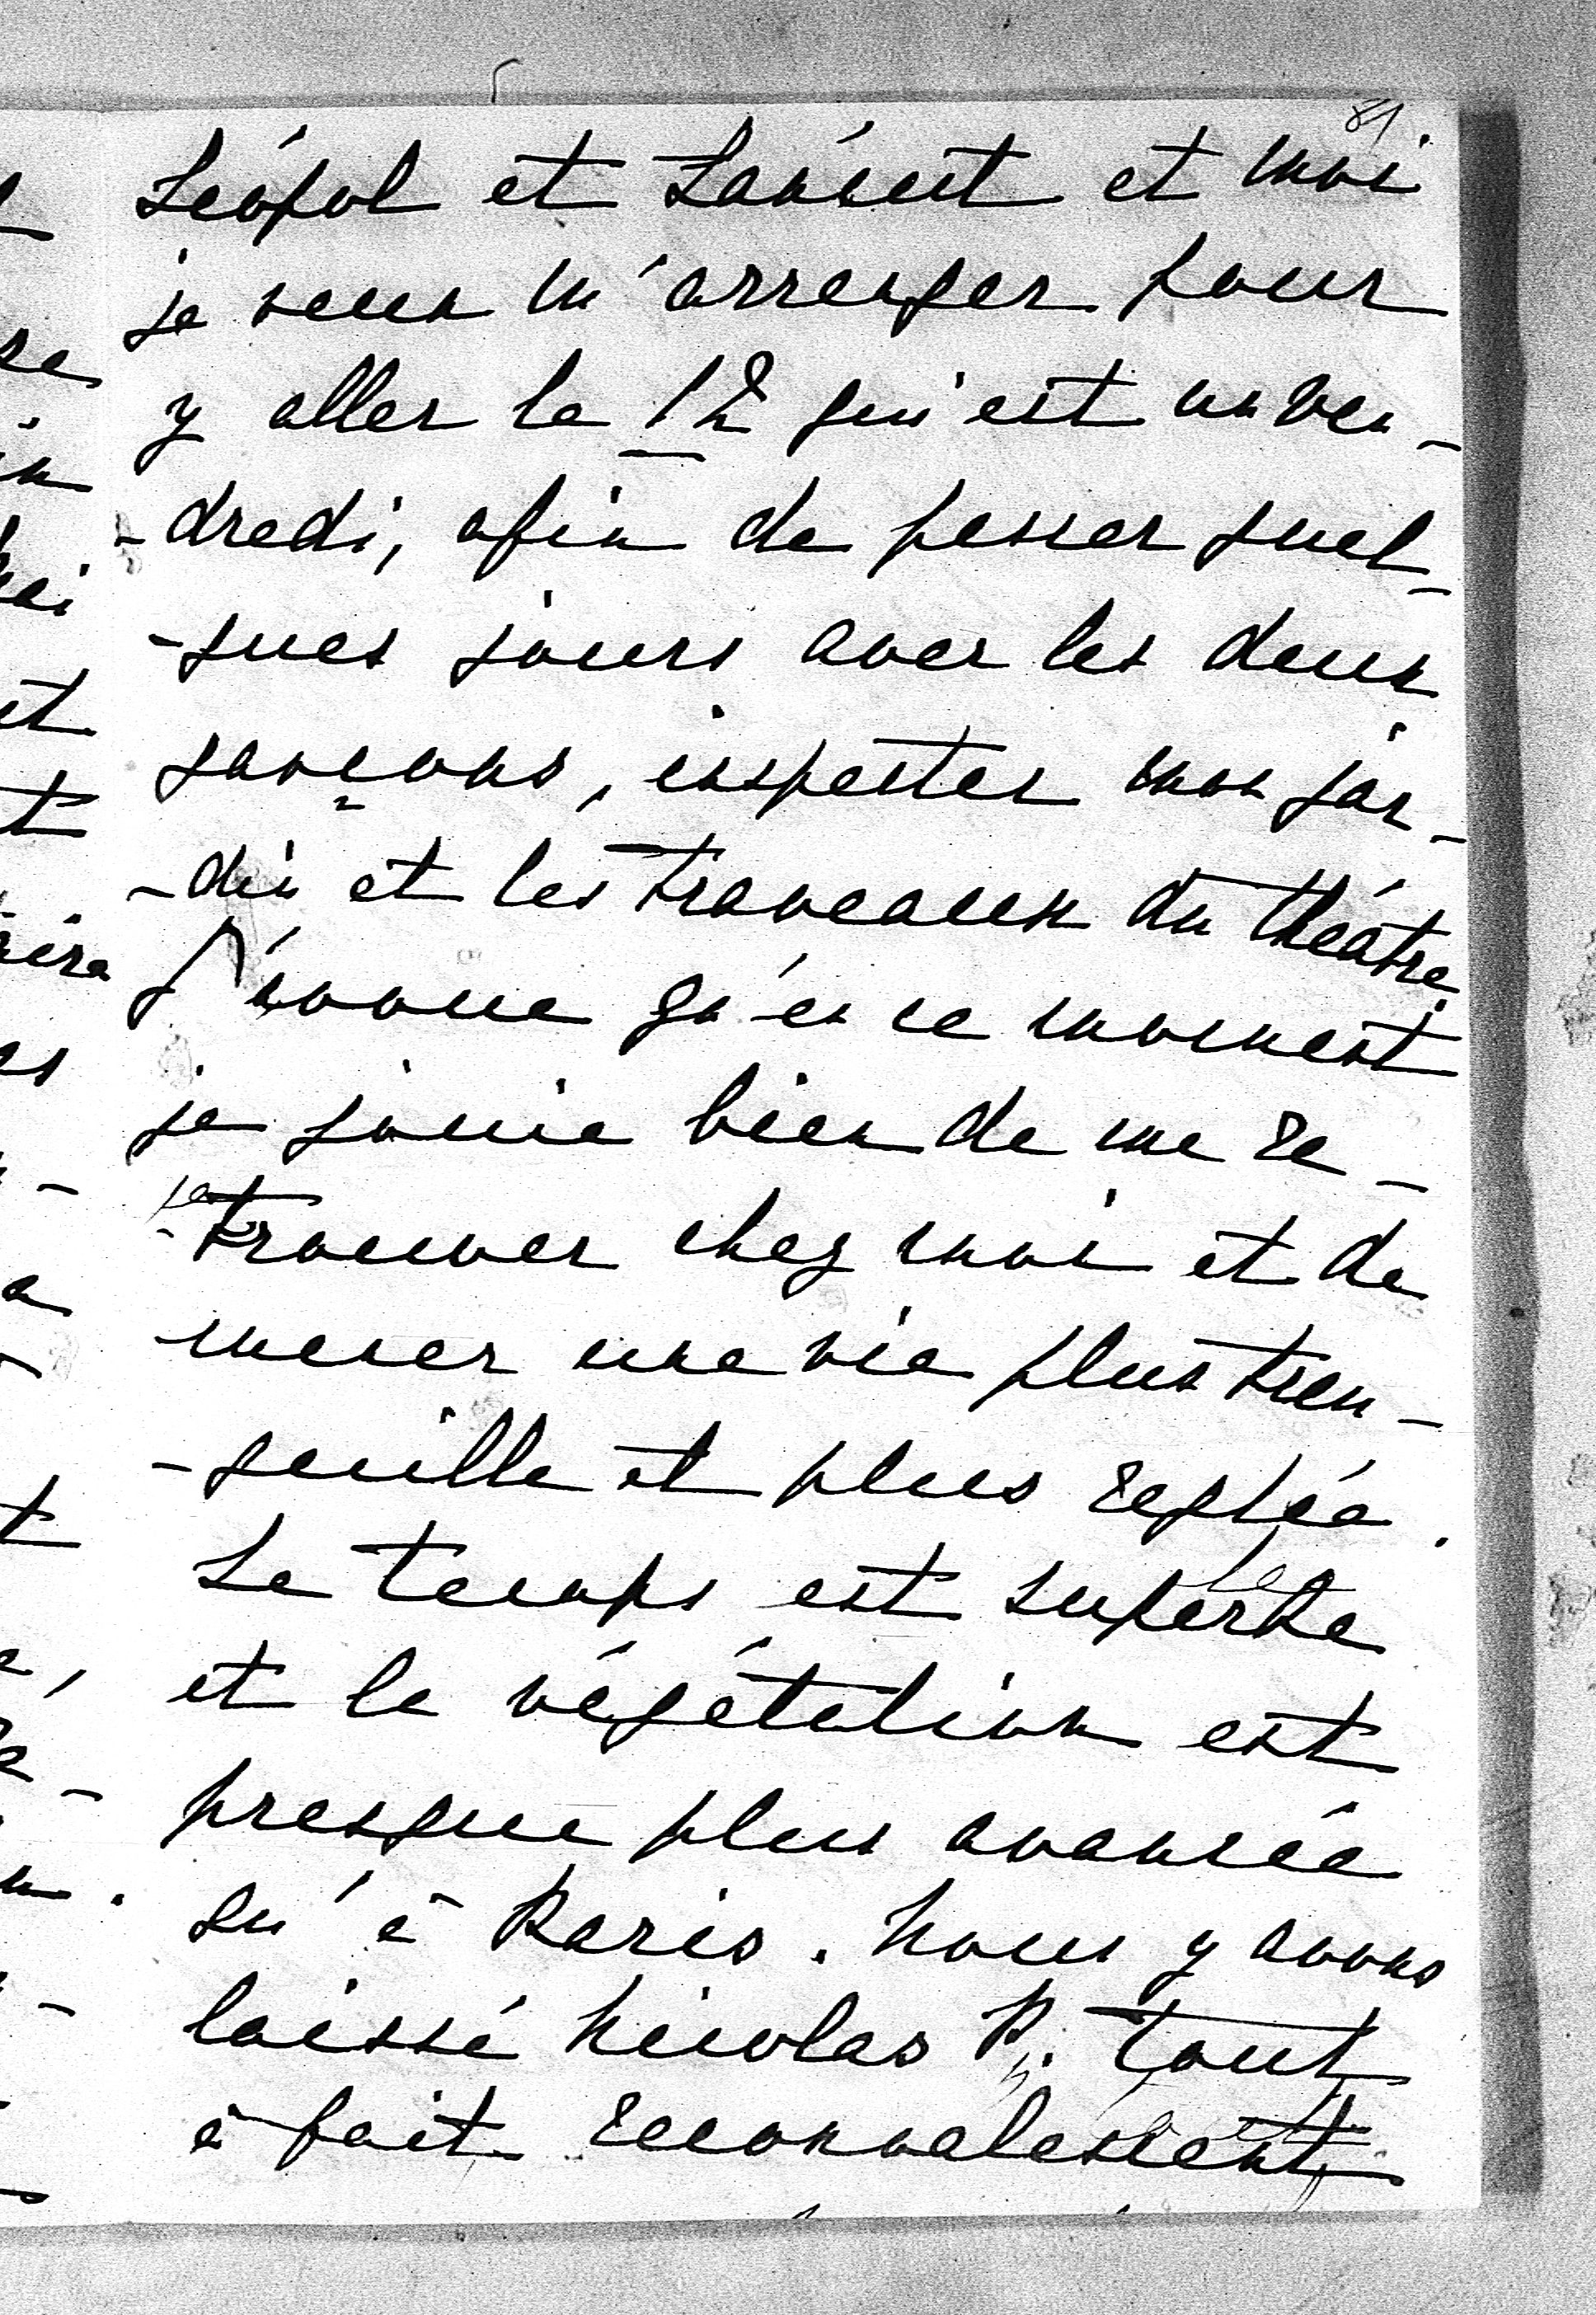 81.
Léopol et Lambert et moi
je veux m'arranger pour
y aller le 12 qui est un ven-
-dredi, afin de passer quel-
-ques jours avec les deux
garçons, inspecter mon jar-
-din et les travaux du théâtre.
J'avoue qu'en ce moment
je jouie bien de me re-
-trouver chez moi et de
mener une vie plus tran-
-quille et plus reglée.
Le temps est superbe
et la végétation est
presque plus avancée
qu'à Paris. Nous y avons
laissé Nicolas P. tout
à fait reconvalescent